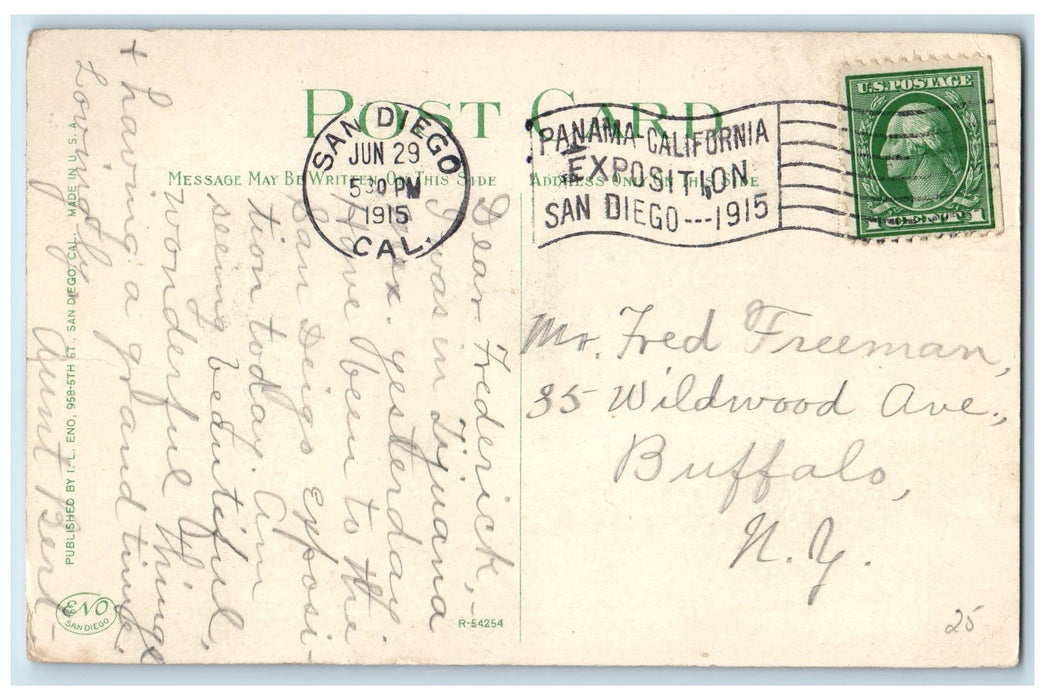 POST CARD
SAN DIEGO
JUN 29
5 30 PM
1915
CAL.
PANAMA-CALIFORNIA
EXPOSITION
SAN DIEGO---1915
U.S. POSTAGE
1 1
MESSAGE MAY BE WRITTEN ON THIS SIDE
ADDRESS ONLY ON THIS SIDE
Dear Frederick,-
I was in Tijuana
Mex. yesterday.
Have been to the
San Deigo Exposi-
tion today. Am
seeing beautiful,
wonderful things
+ having a grand time.
Lovingly,
Aunt Bert-
Mr. Fred Freeman,
35 Wildwood Ave.,
Buffalo,
N.Y.
25
R-54254
PUBLISHED BY I. L. ENO, 958-5TH ST., SAN DIEGO, CAL. MADE IN U. S. A.
ENO
SAN DIEGO